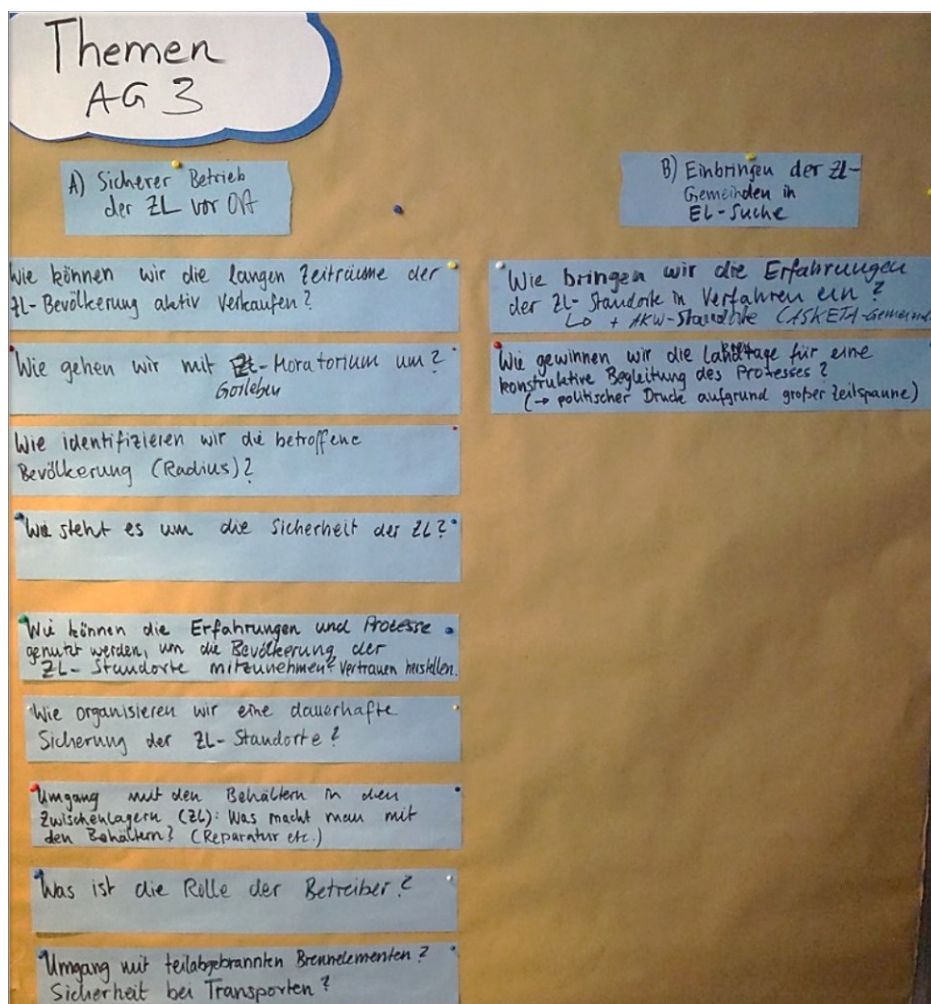 Themen
AG 3
A) Sicherer Betrieb
der ZL vor Ort
Wie können wir die langen Zeiträume der
ZL-Bevölkerung aktiv verkaufen?
Wie gehen wir mit -Moratorium um?
Gorleben
Wie identifizieren wir die betroffene
Bevölkerung (Radius)?
Wie steht es um die Sicherheit der ZL?
Wie können die Erfahrungen und Prozesse
genutzt werden, um die Bevölkerung der
ZL-Standorte mitzunehmen? Vertrauen herstellen.
Wie organisieren wir eine dauerhafte
Sicherung der ZL-Standorte?
Umgang mit den Behältern in den
Zwischenlagern (ZL): Was macht man mit
den Behältern? (Reparatur etc.)
Was ist die Rolle der Betreiber?
Umgang mit teilabgebrannten Brennelementen?
Sicherheit bei Transporten?
B) Einbringen der ZL-
Gemeinden in
EL-Suche
Wie bringen wir die Erfahrungen
der ZL-Standorte in Verfahren ein?
+ AKW-Standorte (ASKETA-Gemeind
Wie gewinnen wir die für eine
konstruktive Begleitung des Prozesses?
(→ politischer Druck aufgrund großer Zeitspanne)